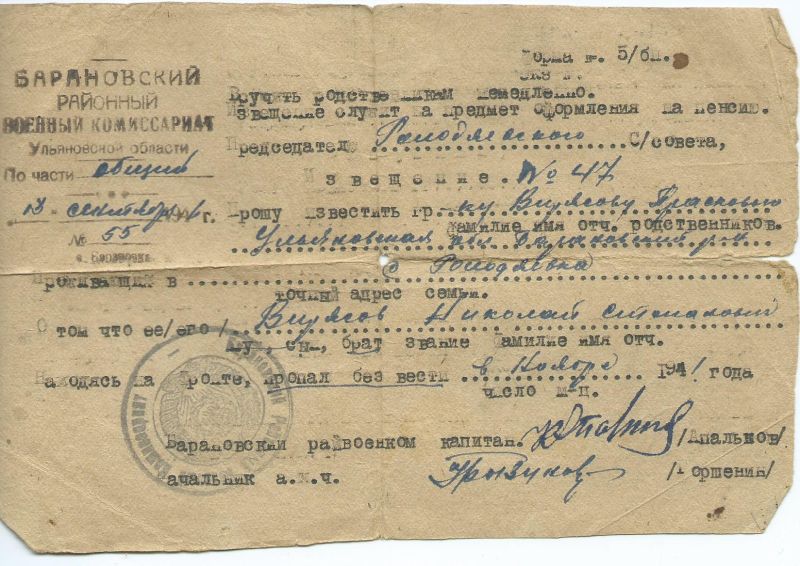 Форма № 5/бп.
БАРАНОВСКИЙ
РАЙОННЫЙ
ВОЕННЫЙ КОМИССАРИАТ
Ульяновской области
По части общий
13 сентября г.
№ 55
Вручить родственникам немедленно.
Извещение служит на предмет оформления на пенсию.
Председателю С/совета,
Извещение. № 47
Прошу известить гр-ку Видясову Прасковью
фамилие имя отч. родственников.
Ульяновская обл Барановский р-н
Проживающих в с
точный адрес семьи.
О том что ее/его/ Видясов Николай Степанович
муж, сын, брат звание фамилие имя отч.
Находясь на фронте, пропал без вести в Ноябре 1941 года
число м-ц.
Барановский райвоенком капитан. /Апальков/
Начальник а.х.ч. /Горшенин/